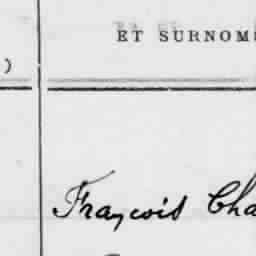 ET SURNOMS
)
François Cha